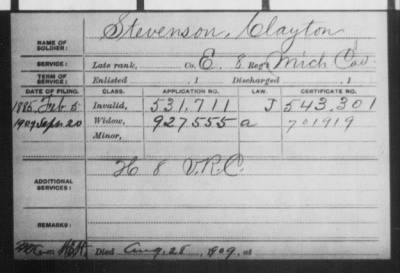 Stevenson, Clayton
NAME OF SOLDIER:
SERVICE: Late rank, Co. E, 8 Reg't Mich Cav
TERM OF SERVICE: Enlisted , 1 Discharged , 1
DATE OF FILING. CLASS. APPLICATION NO. LAW. CERTIFICATE NO.
1885 Feb 5 Invalid, 531.711 J 543.301
1909 Sept 20 Widow, 927.555 a 701919
Minor,
ADDITIONAL SERVICES: H 8 V.R.C.
REMARKS:
Died Aug. 28, 1909, at